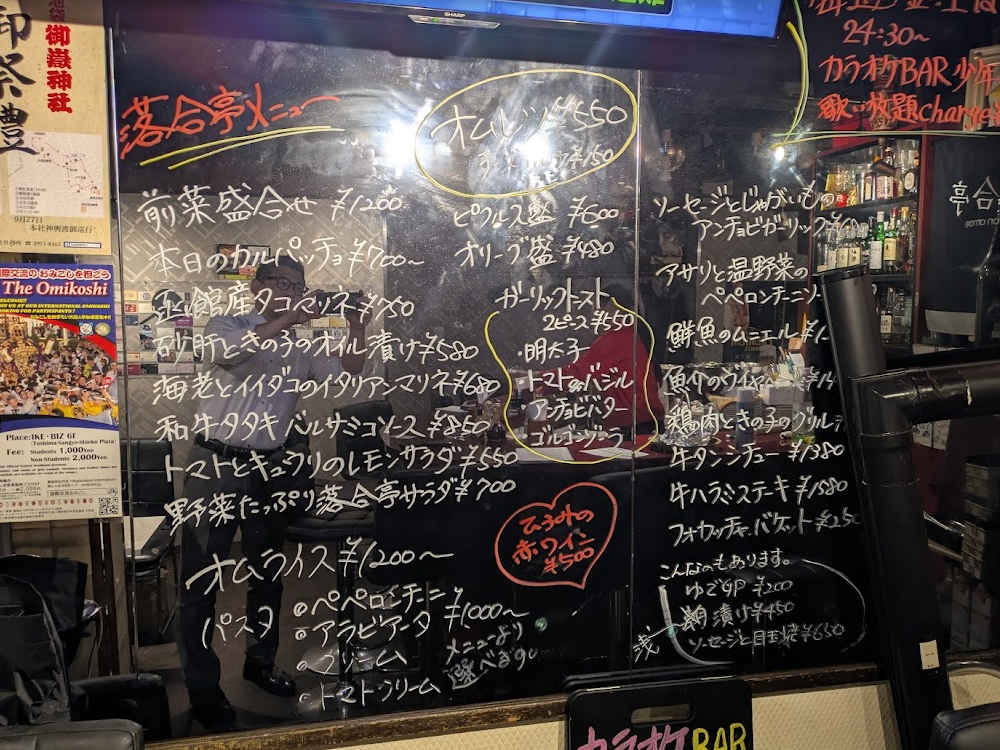 SHARP
落合亭メニュー
オムレツ ¥550
前菜盛合せ ¥1200
本日のカルパッチョ ¥700〜
函館産タコマリネ ¥750
砂肝ときの子のオイル漬け ¥580
海老とイイダコのイタリアンマリネ ¥680
和牛タタキ バルサミコソース ¥850
トマトとキュウリのレモンサラダ ¥550
野菜たっぷり落合亭サラダ ¥700
オムライス ¥1200〜
パスタ
・ペペロンチーニ
・アラビアータ
・クリーム
・トマトクリーム
¥1000〜
メニューより
選べます。
ピクルス盛 ¥600
オリーブ盛 ¥480
ガーリックトースト
2ピース ¥550
・明太子
・トマト&バジル
・アンチョビバター
・ゴルゴンゾーラ
赤ワイン
¥500
ソーセージとじゃがいもの
アンチョビガーリック
アサリと温野菜の
ペペロンチーニ
鮮魚のムニエル
魚介の
鶏肉ときの子のグリル
牛タンシチュー ¥1380
牛ハラミステーキ ¥1580
フォカッチャ・バケット ¥250
こんなのもあります。
ゆで ¥200
浅漬け ¥450
ソーセージと目玉焼 ¥650
24:30〜
カラオケBAR少年
歌い放題Charge
カラオケBAR
御嶽神社
9月27日
本社神輿渡御巡行
国際交流のおみこしを担ごう
The Omikoshi
WELCOME!!
JOIN US AT OUR INTERNATIONAL OMIKOSHI
LOOKING FOR PARTICIPANTS!
Place:IKE・BIZ 6F
(Toshima-Sangyo-Shinko Plaza)
Fee: Students 1,000Yen
Non-Students 2,000Yen